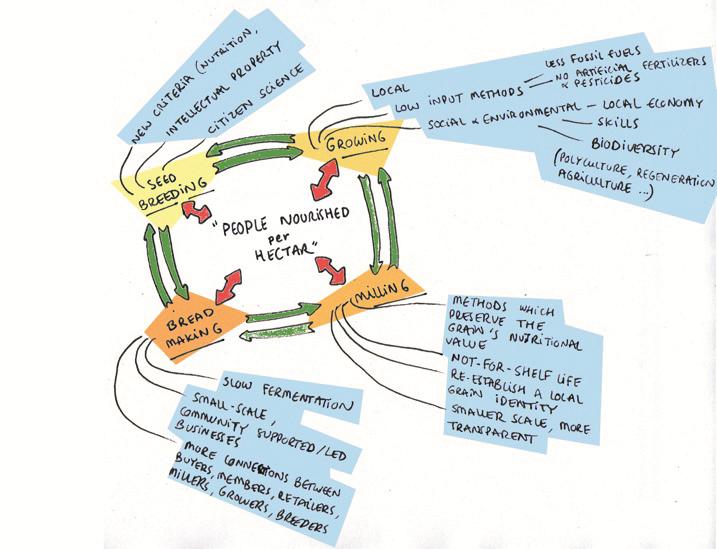 NEW CRITERIA (NUTRITION,
INTELLECTUAL PROPERTY
CITIZEN SCIENCE
SEED
BREEDING
GROWING
LOCAL
LOW INPUT METHODS
LESS FOSSIL FUELS
NO ARTIFICIAL FERTILIZERS
& PESTICIDES
SOCIAL & ENVIRONMENTAL – LOCAL ECONOMY
SKILLS
BIODIVERSITY
(POLYCULTURE, REGENERATION
AGRICULTURE ...)
"PEOPLE NOURISHED
per
HECTAR"
MILLING
METHODS WHICH
PRESERVE THE
GRAIN'S NUTRITIONAL
VALUE
NOT-FOR-SHELF LIFE
RE-ESTABLISH A LOCAL
GRAIN IDENTITY
SMALLER SCALE, MORE
TRANSPARENT
BREAD
MAKING
SLOW FERMENTATION
SMALL-SCALE,
COMMUNITY SUPPORTED/LED
BUSINESSES
MORE CONNECTIONS BETWEEN
BUYERS, MEMBERS, RETAILERS,
MILLERS, GROWERS, BREEDERS